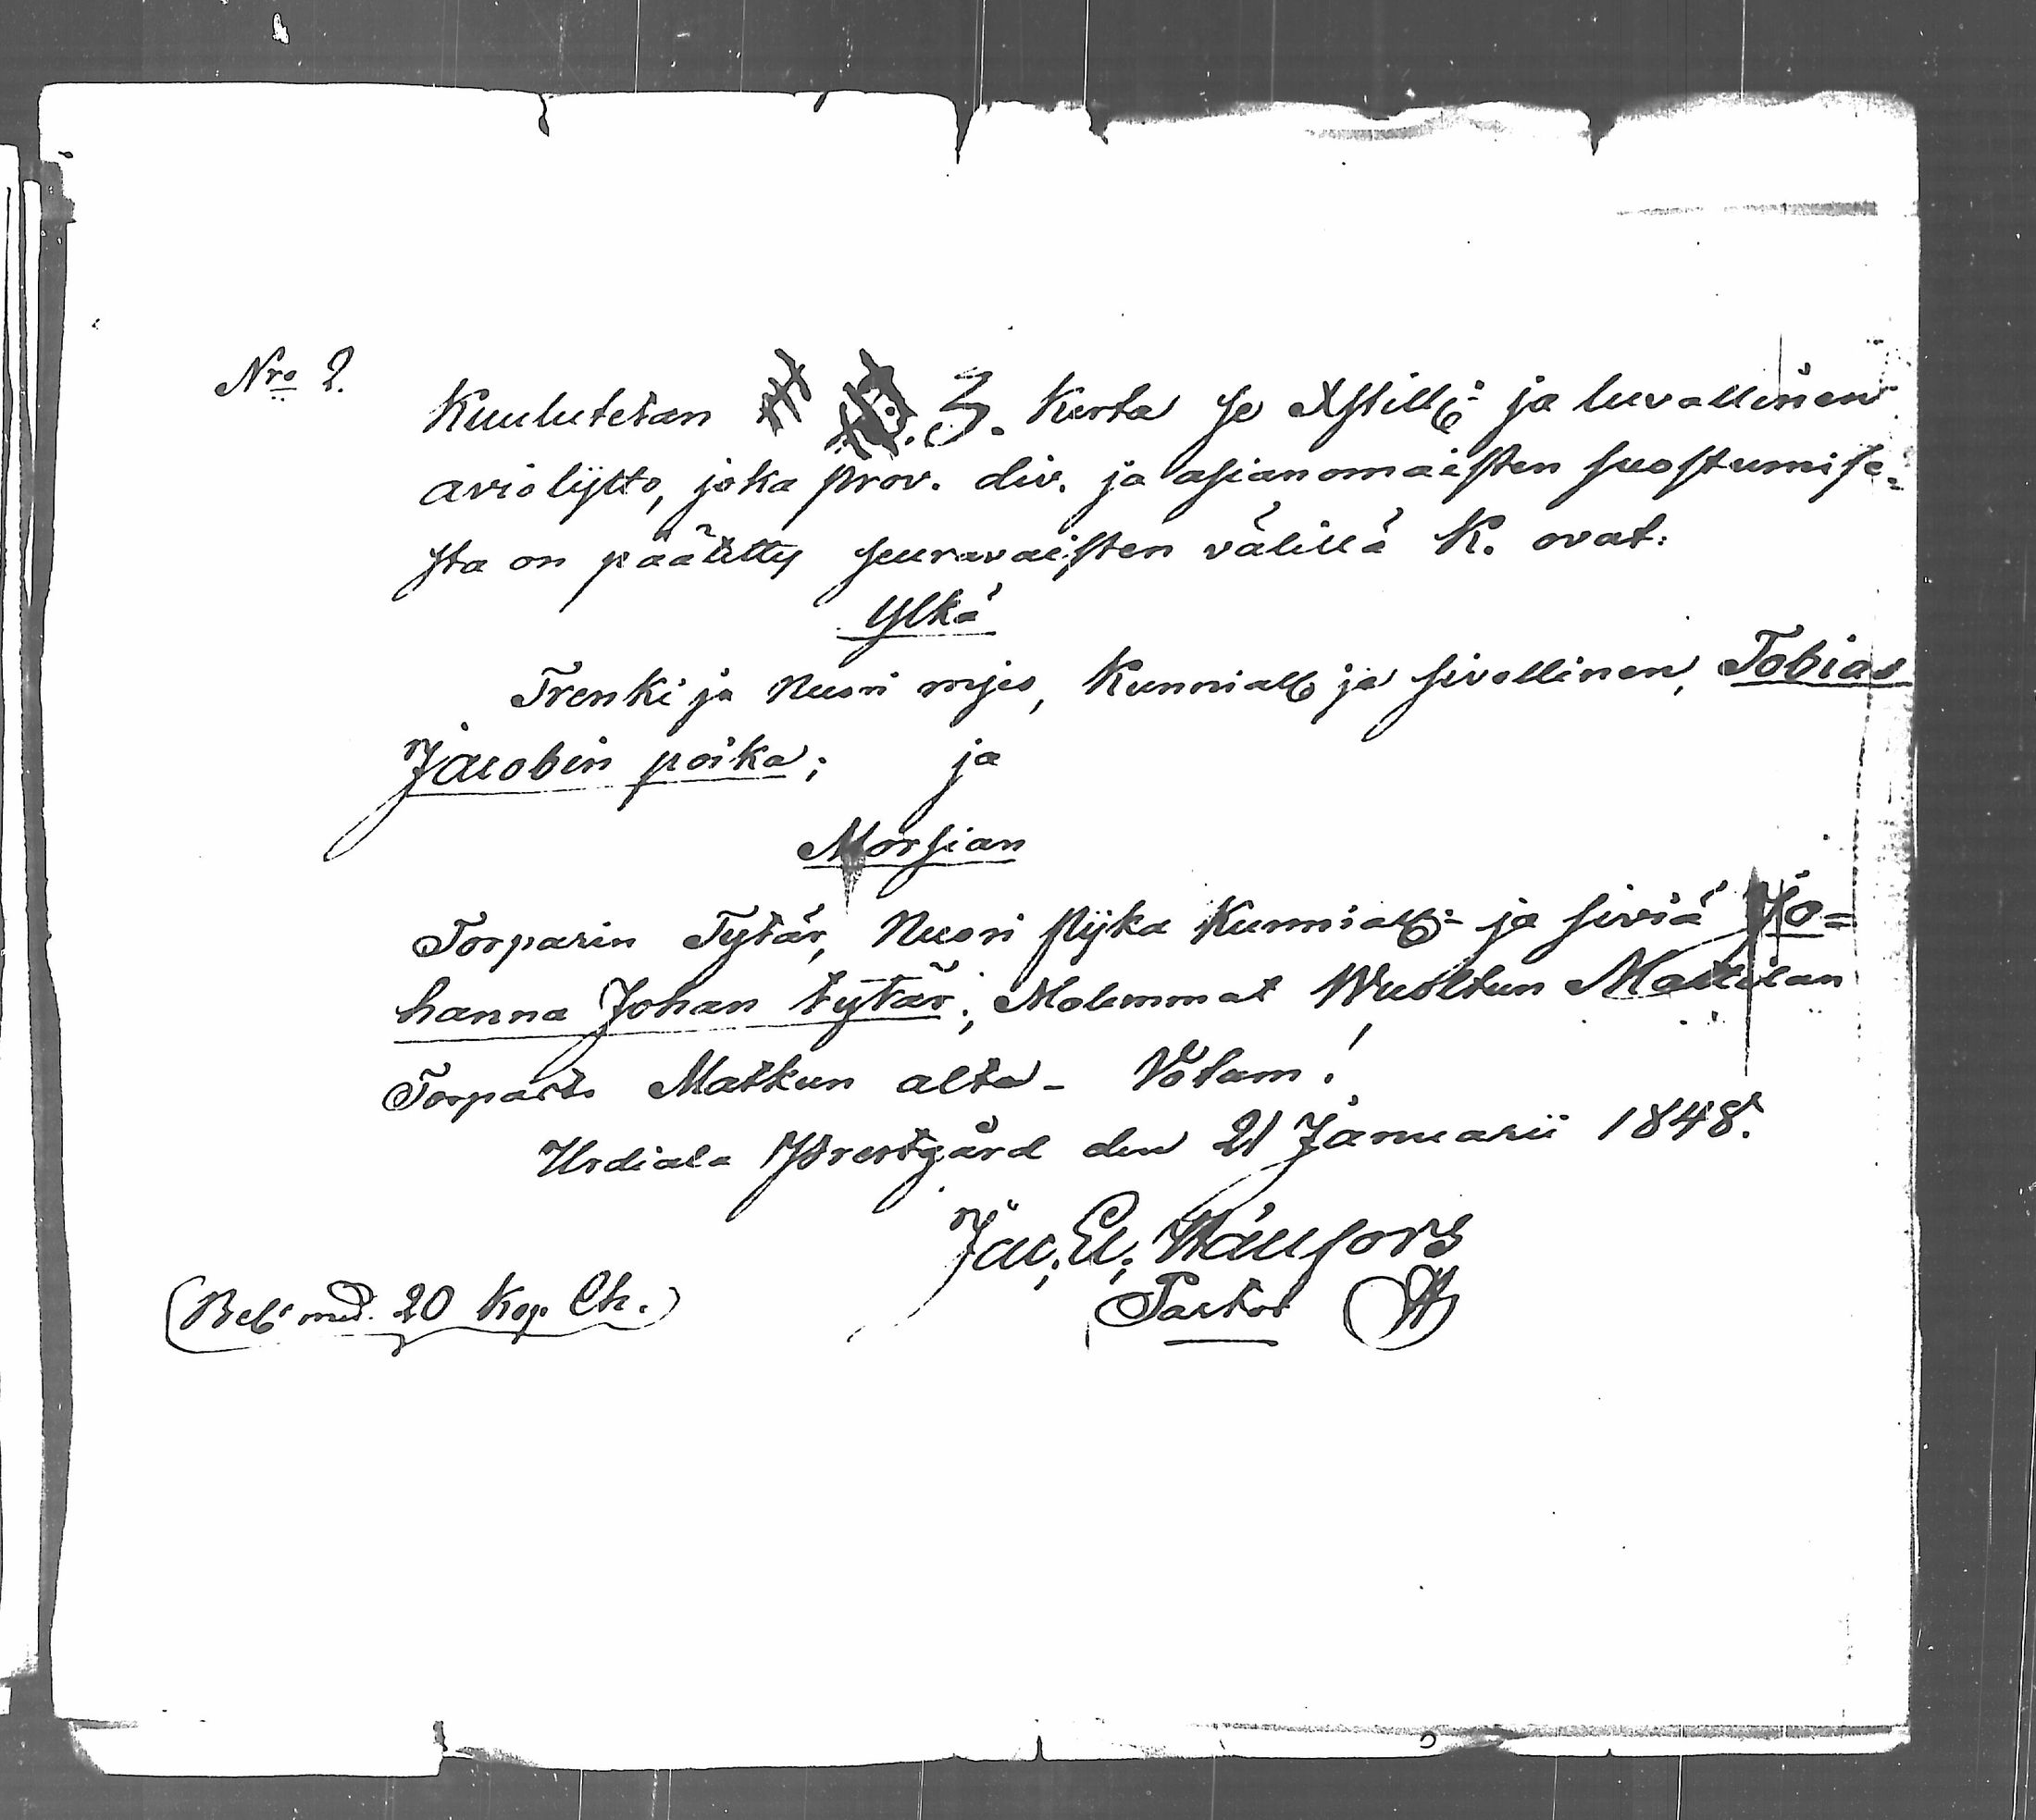 Nro 2.
Kuulutetan 3. Kerta se Xstill: ja luvallinen
aviolijtto, joka prov. div. ja asianomaisten suostumise-
sta on päätetty seuravaisten välillä K. ovat:
Ylkä
Trenki ja Nuori mjes, Kunniall ja sivellinen, Tobias
Jacobin poika; ja
Morsian
Torparin Tytär, Nuori pijka Kunniall: ja siviä Jo=
hanna Johan tytär; Molemmat Wuoltun Mattilan
Torparis Matkun alta - Votam!
Urdiala Prestgård den 21 Januarii 1848.
Jac. El.
Pastor
(Bet. med. 20 Kop. Ch.)